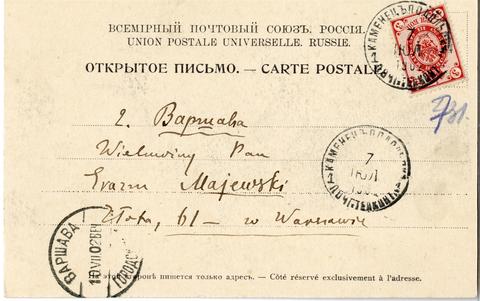 ВСЕМІРНЫЙ ПОЧТОВЫЙ СОЮЗЪ. РОССІЯ.
UNION POSTALE UNIVERSELLE. RUSSIE.
ОТКРЫТОЕ ПИСЬМО. — CARTE POSTALE
КАМЕНЕЦЪ ПОДОЛЬ
7
г. Варшава
Wielmożny Pan
Erazm Majewski
Złota, 61 — w Warszawie
КАМЕНЕЦЪ ПОДОЛ
7
ІЮЛ
ВАРШАВА
10 VII 02
ГОРОДСК
На этой сторонѣ пишется только адресъ. — Côté réservé exclusivement à l'adresse.